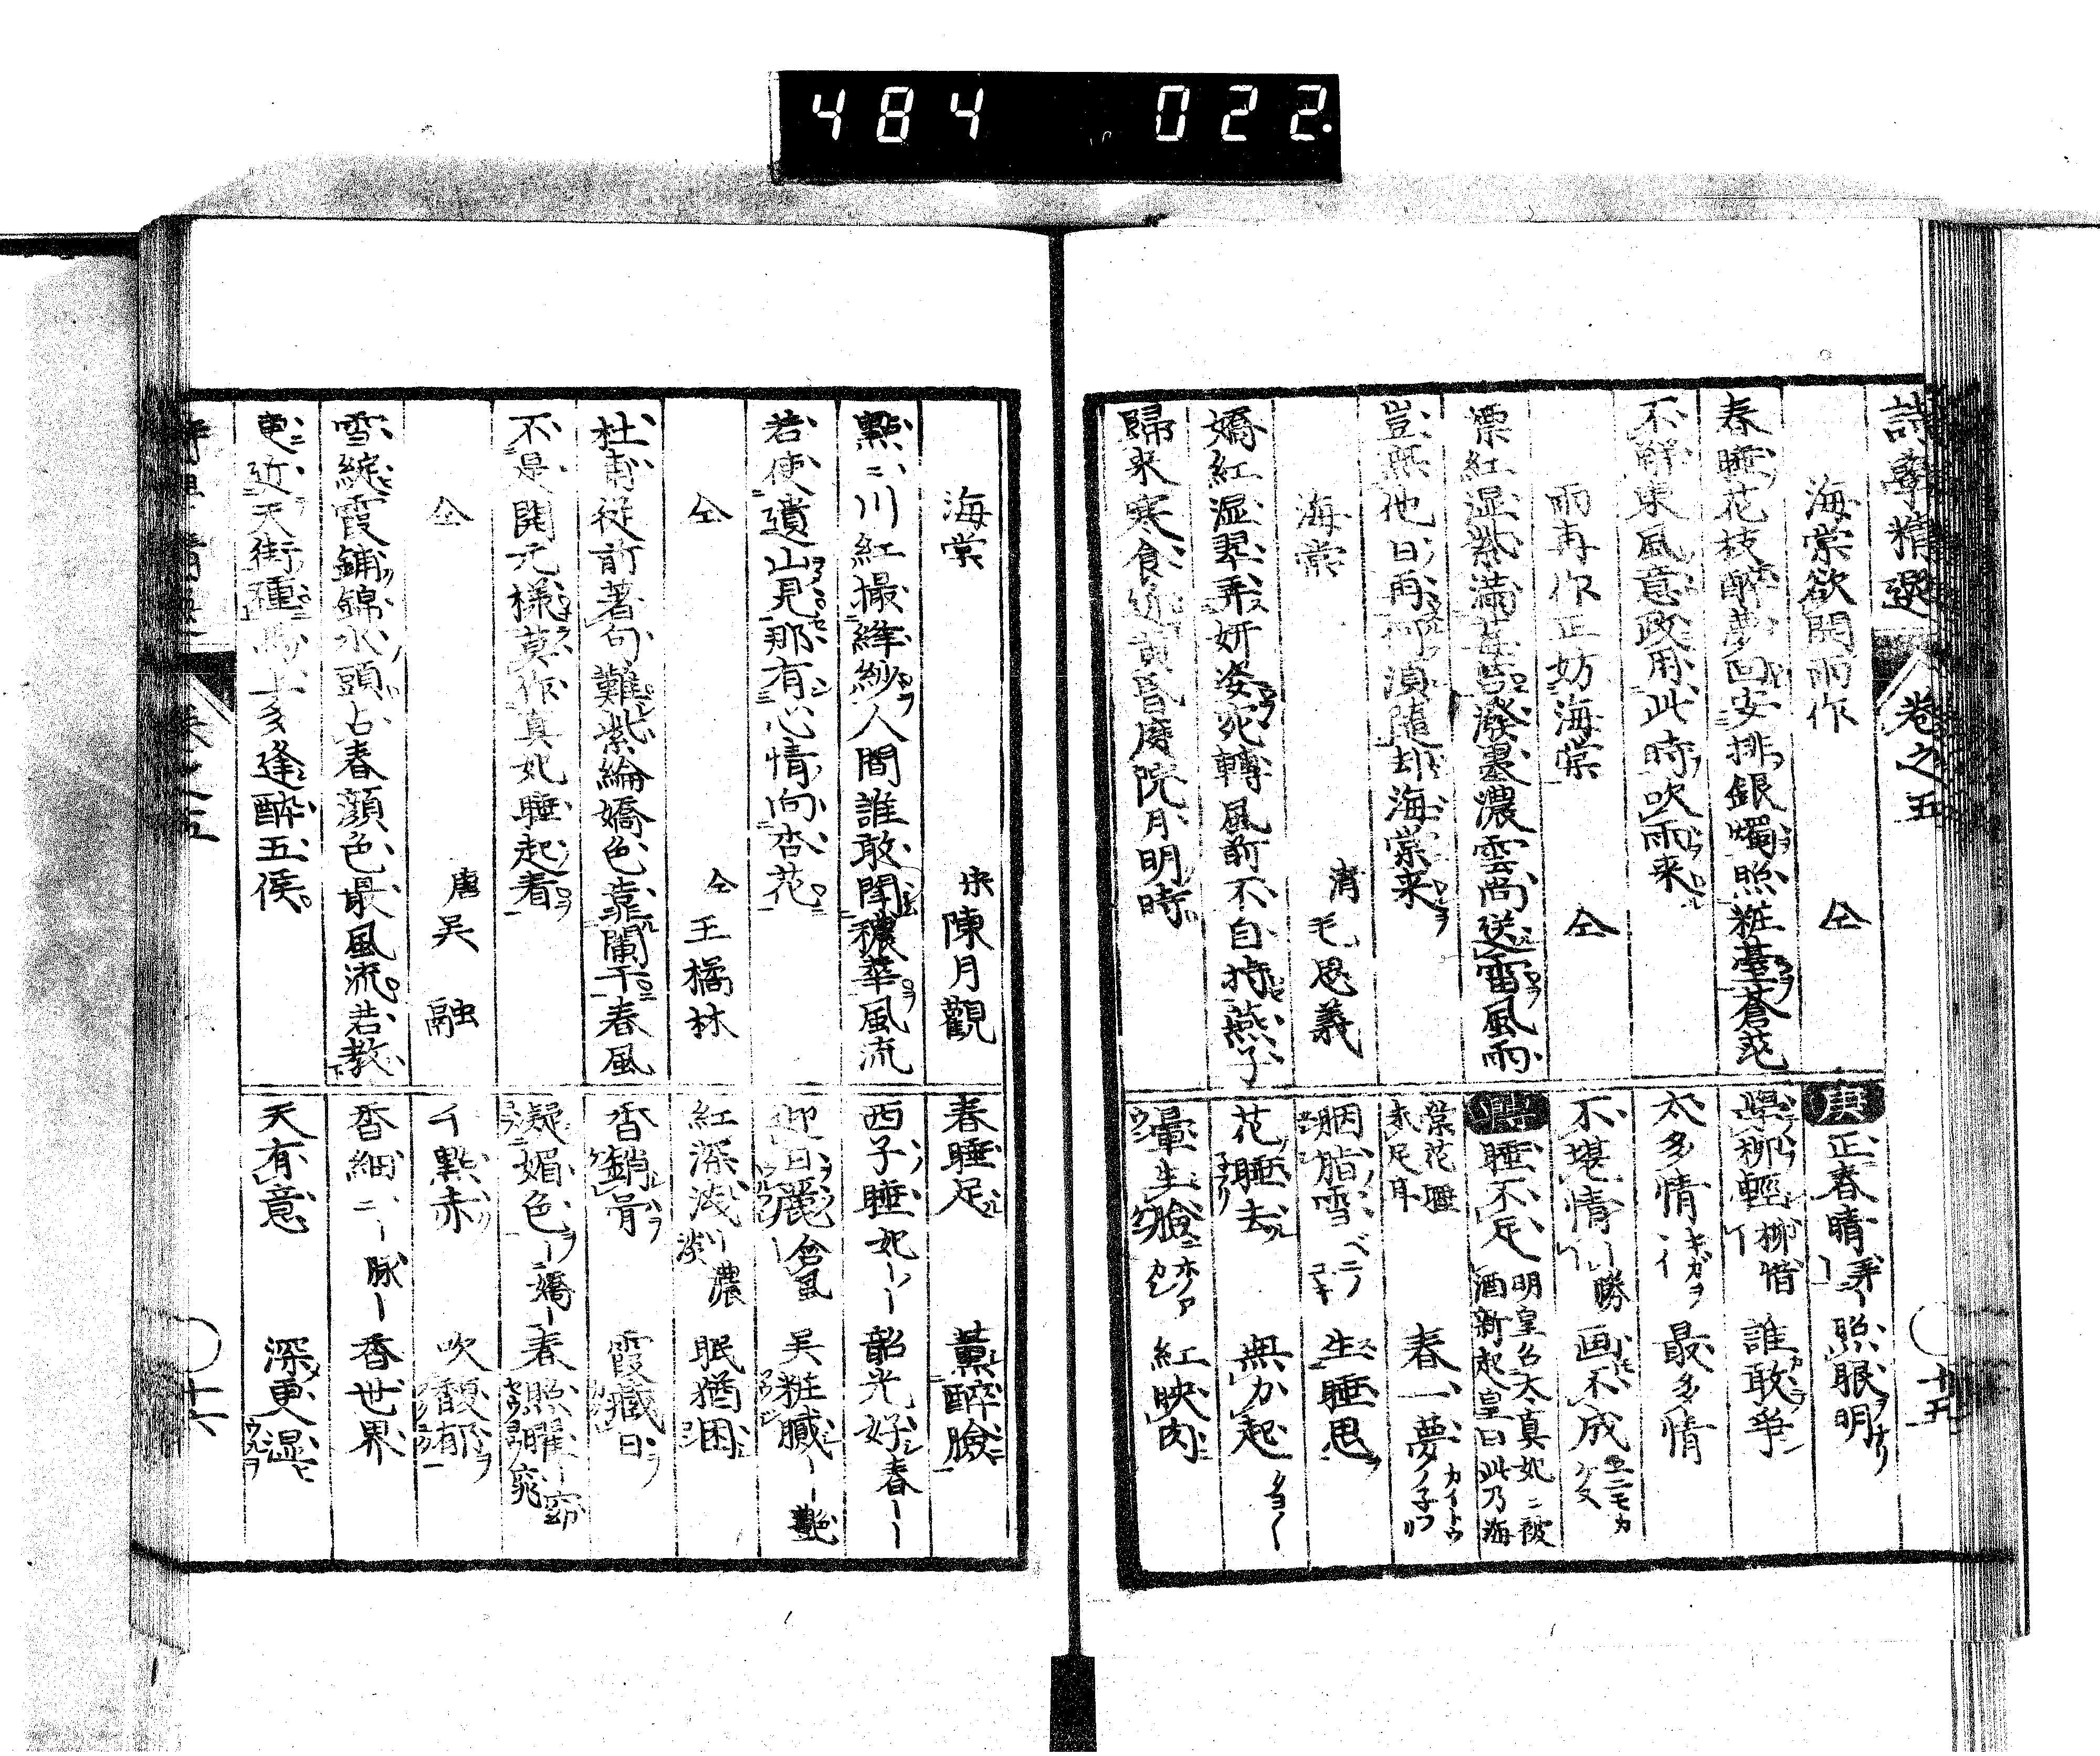 484 022.
詩學精選 卷之五
海棠欲開雨作 仝
春睡花枝醉夢回安排銀燭照粧臺蒼茫
不解東風意政用此時吹雨来
雨再作正妨海棠 仝
漂紅湿紫滿莓苔潑墨濃雲尚送雷風雨
豈無他日再何須隨却海棠来
海棠 清 毛思義
嬌紅湿翠弄妍姿宛轉風前不自持燕子
歸来寒食近黄昏庭院月明時
正春晴 照眼明
柳輕 柳惜 誰敢爭
太多情 最多情
不堪情 勝 画不成
睡不足 明皇召太真妃ニ被酒新起皇曰此乃海
棠花睡未足耳 春一夢
胭脂雪 生睡思
花睡去 無力起
暈生臉 紅映肉
海棠 宋 陳月觀
點ミ川紅撮絳紗人間誰敢鬪穠華風流
若使遺山見那有心情向杏花
仝 仝 王橘林
杜甫從前著句難紫綸嬌色靠闌干春風
不是開元樣莫作真妃睡起看
仝 唐 吳融
雪綻霞鋪錦水頭占春顔色最風流若教
更近天街種馬上多逢醉五侯
春睡足 薫醉臉
西子睡 妃 韶光好 春
迎日麗 含風 吳粧膩 艶
紅深浅 淡濃 眠猶困
香銷骨 霞藏日
凝媚色 嬌 春照曜 窈窕
千點赤 吹馥郁
香細ミ 脉 香世界
天有意 深更湿
十六